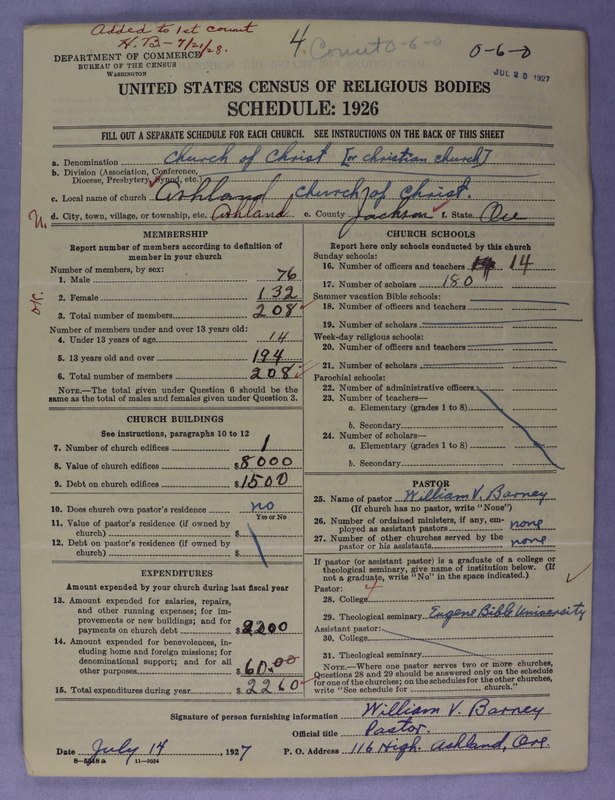 Added to 1st count
H.B- 7/21/28.
4. Count 0-6-0
0-6-0
DEPARTMENT OF COMMERCE
BUREAU OF THE CENSUS
WASHINGTON
JUL 20 1927
UNITED STATES CENSUS OF RELIGIOUS BODIES
SCHEDULE: 1926
FILL OUT A SEPARATE SCHEDULE FOR EACH CHURCH. SEE INSTRUCTIONS ON THE BACK OF THIS SHEET
a. Denomination Church of Christ [or Christian Church]
b. Division (Association, Conference, Diocese, Presbytery, Synod, etc.)
c. Local name of church Ashland Church of Christ.
d. City, town, village, or township, etc. Ashland e. County Jackson f. State Ore
MEMBERSHIP
Report number of members according to definition of
member in your church
Number of members, by sex:
1. Male 76
2. Female 132
3. Total number of members 208
Number of members under and over 13 years old:
4. Under 13 years of age 14
5. 13 years old and over 194
6. Total number of members 208
NOTE.—The total given under Question 6 should be the
same as the total of males and females given under Question 3.
O.K.
CHURCH BUILDINGS
See instructions, paragraphs 10 to 12
7. Number of church edifices 1
8. Value of church edifices $8000
9. Debt on church edifices $1500
10. Does church own pastor's residence? no
Yes or No
11. Value of pastor's residence (if owned by
church) $
12. Debt on pastor's residence (if owned by
church) $
EXPENDITURES
Amount expended by your church during last fiscal year
13. Amount expended for salaries, repairs,
and other running expenses; for im-
provements or new buildings; and for
payments on church debt $2200
14. Amount expended for benevolences, in-
cluding home and foreign missions; for
denominational support; and for all
other purposes $60.00
15. Total expenditures during year $2260
CHURCH SCHOOLS
Report here only schools conducted by this church
Sunday schools:
16. Number of officers and teachers 14
17. Number of scholars 180
Summer vacation Bible schools:
18. Number of officers and teachers
19. Number of scholars
Week-day religious schools:
20. Number of officers and teachers
21. Number of scholars
Parochial schools:
22. Number of administrative officers
23. Number of teachers—
a. Elementary (grades 1 to 8)
b. Secondary
24. Number of scholars—
a. Elementary (grades 1 to 8)
b. Secondary
PASTOR
25. Name of pastor William V. Barney
(If church has no pastor, write "None")
26. Number of ordained ministers, if any, em-
ployed as assistant pastors none
27. Number of other churches served by the
pastor or his assistants none
If pastor (or assistant pastor) is a graduate of a college or
theological seminary, give name of institution below. (If
not a graduate, write "No" in the space indicated.)
Pastor:
28. College
29. Theological seminary Eugene Bible University
Assistant pastor:
30. College
31. Theological seminary
NOTE.—Where one pastor serves two or more churches,
Questions 28 and 29 should be answered only on the schedule
for one of the churches; on the schedules for the other churches,
write "See schedule for church."
Signature of person furnishing information William V. Barney
Official title Pastor.
Date July 14, 1927 P. O. Address 116 High. Ashland, Ore.
8-5548 a 11-9024